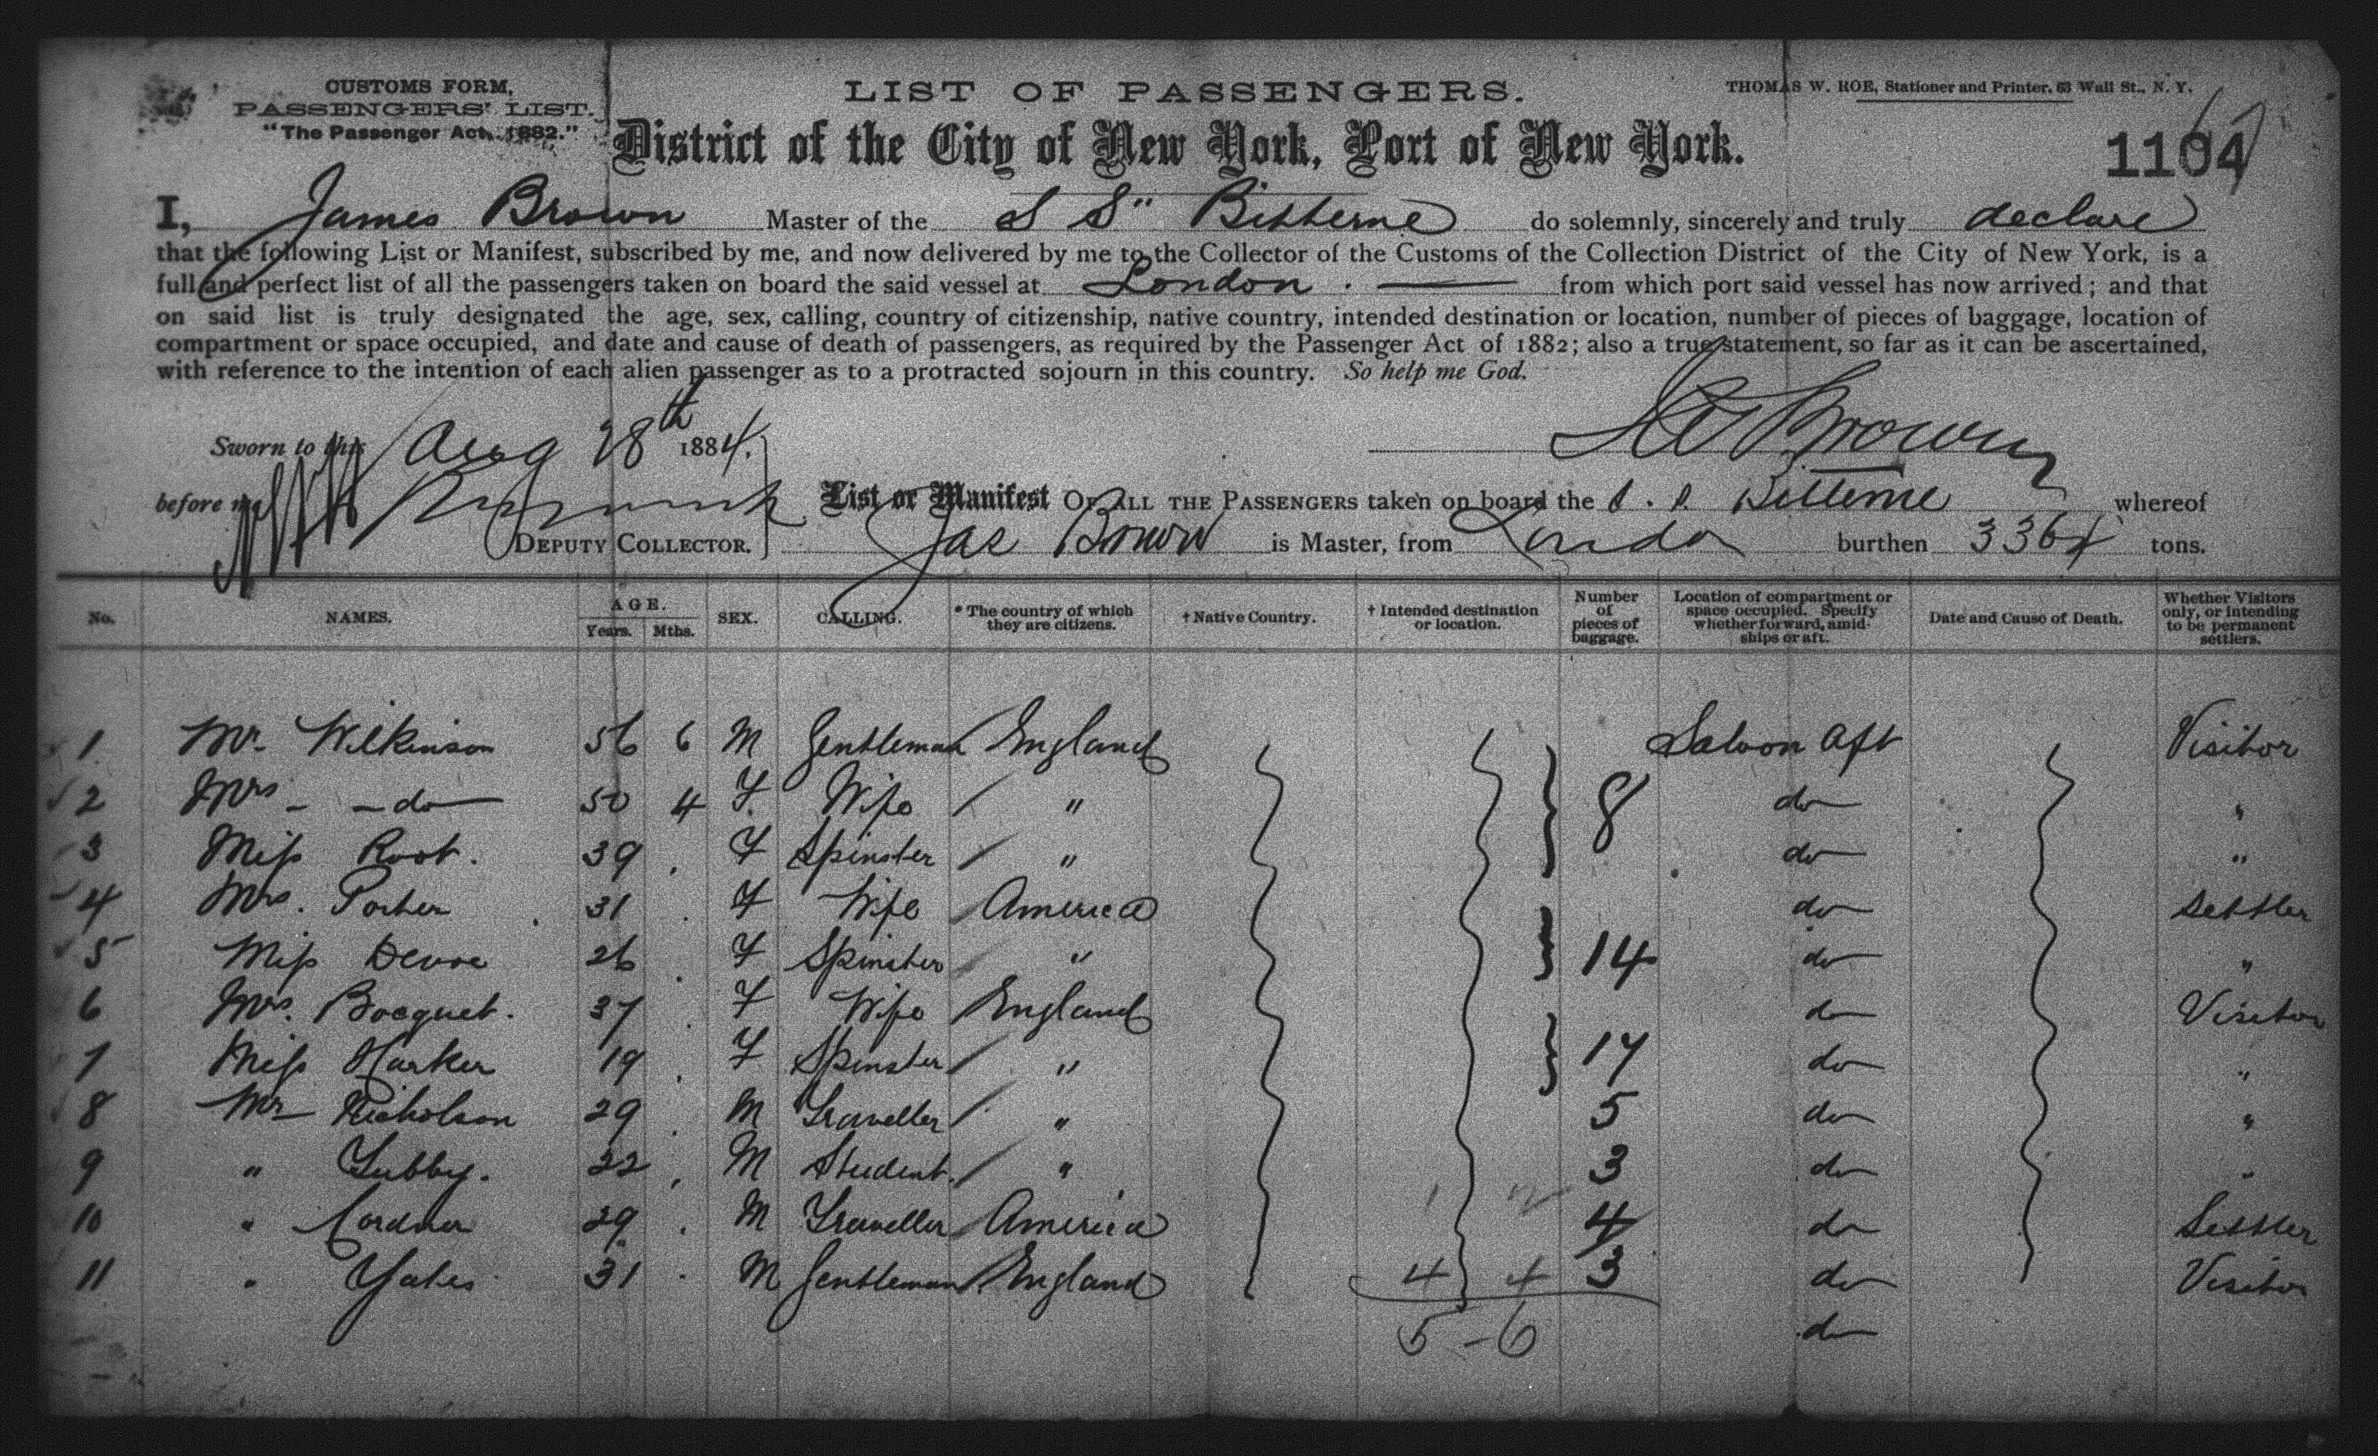 CUSTOMS FORM,
PASSENGERS' LIST.
"The Passenger Act, 1882."
LIST OF PASSENGERS.
THOMAS W. ROE, Stationer and Printer, 63 Wall St., N. Y.
District of the City of New York, Port of New York.
1104
I, James Brown Master of the S S" Bitterne do solemnly, sincerely and truly declare
that the following List or Manifest, subscribed by me, and now delivered by me to the Collector of the Customs of the Collection District of the City of New York, is a
full and perfect list of all the passengers taken on board the said vessel at London from which port said vessel has now arrived; and that
on said list is truly designated the age, sex, calling, country of citizenship, native country, intended destination or location, number of pieces of baggage, location of
compartment or space occupied, and date and cause of death of passengers, as required by the Passenger Act of 1882; also a true statement, so far as it can be ascertained,
with reference to the intention of each alien passenger as to a protracted sojourn in this country. So help me God.
Sworn to this Aug 28th 1884. Brown
before me
List or Manifest OF ALL THE PASSENGERS taken on board the S. S. Bitterne whereof
DEPUTY COLLECTOR. Jas Brown is Master, from London burthen 3364 tons.
No. NAMES. AGE. Years. Mths. SEX. CALLING. * The country of which they are citizens. † Native Country. † Intended destination or location. Number of pieces of baggage. Location of compartment or space occupied. Specify whether forward, amidships or aft. Date and Cause of Death. Whether Visitors only, or intending to be permanent settlers.
1 Mr. Wilkinson 56 6 M Gentleman England Saloon Aft Visitor
2 Mrs - - do 50 4 F. Wife " 8 do "
3 Miss Root. 39 F Spinster " do "
4 Mrs. Porter 31 F Wife America do Settler
5 Miss Devoe 26 F Spinster " 14 do "
6 Mrs. Bocquet. 37 F Wife England do Visitor
7 Miss Harker 19 F Spinster " 17 do "
8 Mr Nicholson 29 M Traveller " 5 do "
9 " Tubby. 22 M Student " 3 do "
10 " Cordner 29 M Traveller America 4 do Settler
11 " Yates 31 M Gentleman England 4 4 3 do Visitor
5 - 6 do